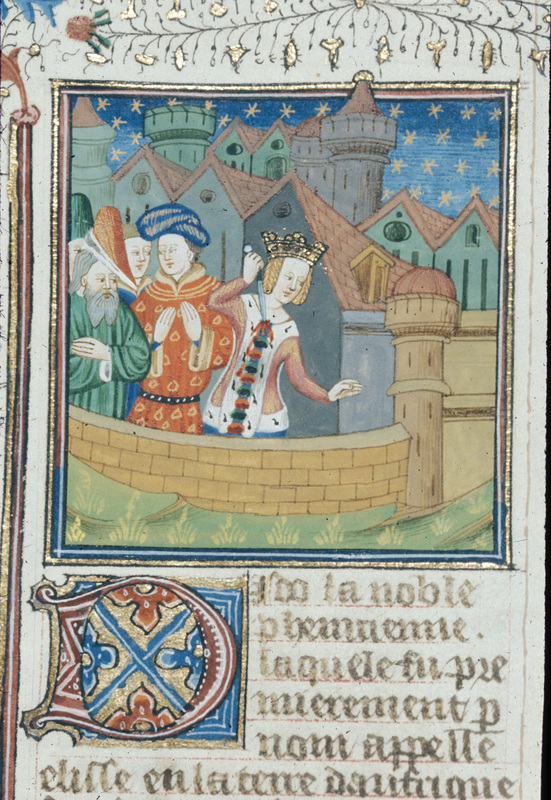 Dido la noble
phenicienne .
laquele fu pre
mierement p
nom appelle
elisse en la terre daufrique